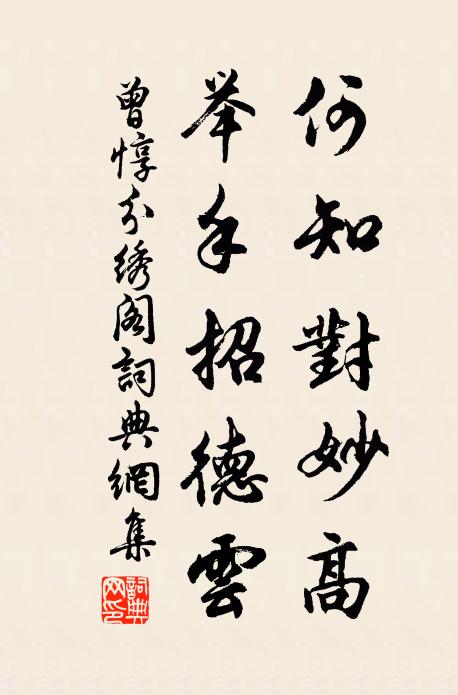 何知對妙高
举手招德雲
曾惇分绣阁詞典網集
詞典网印